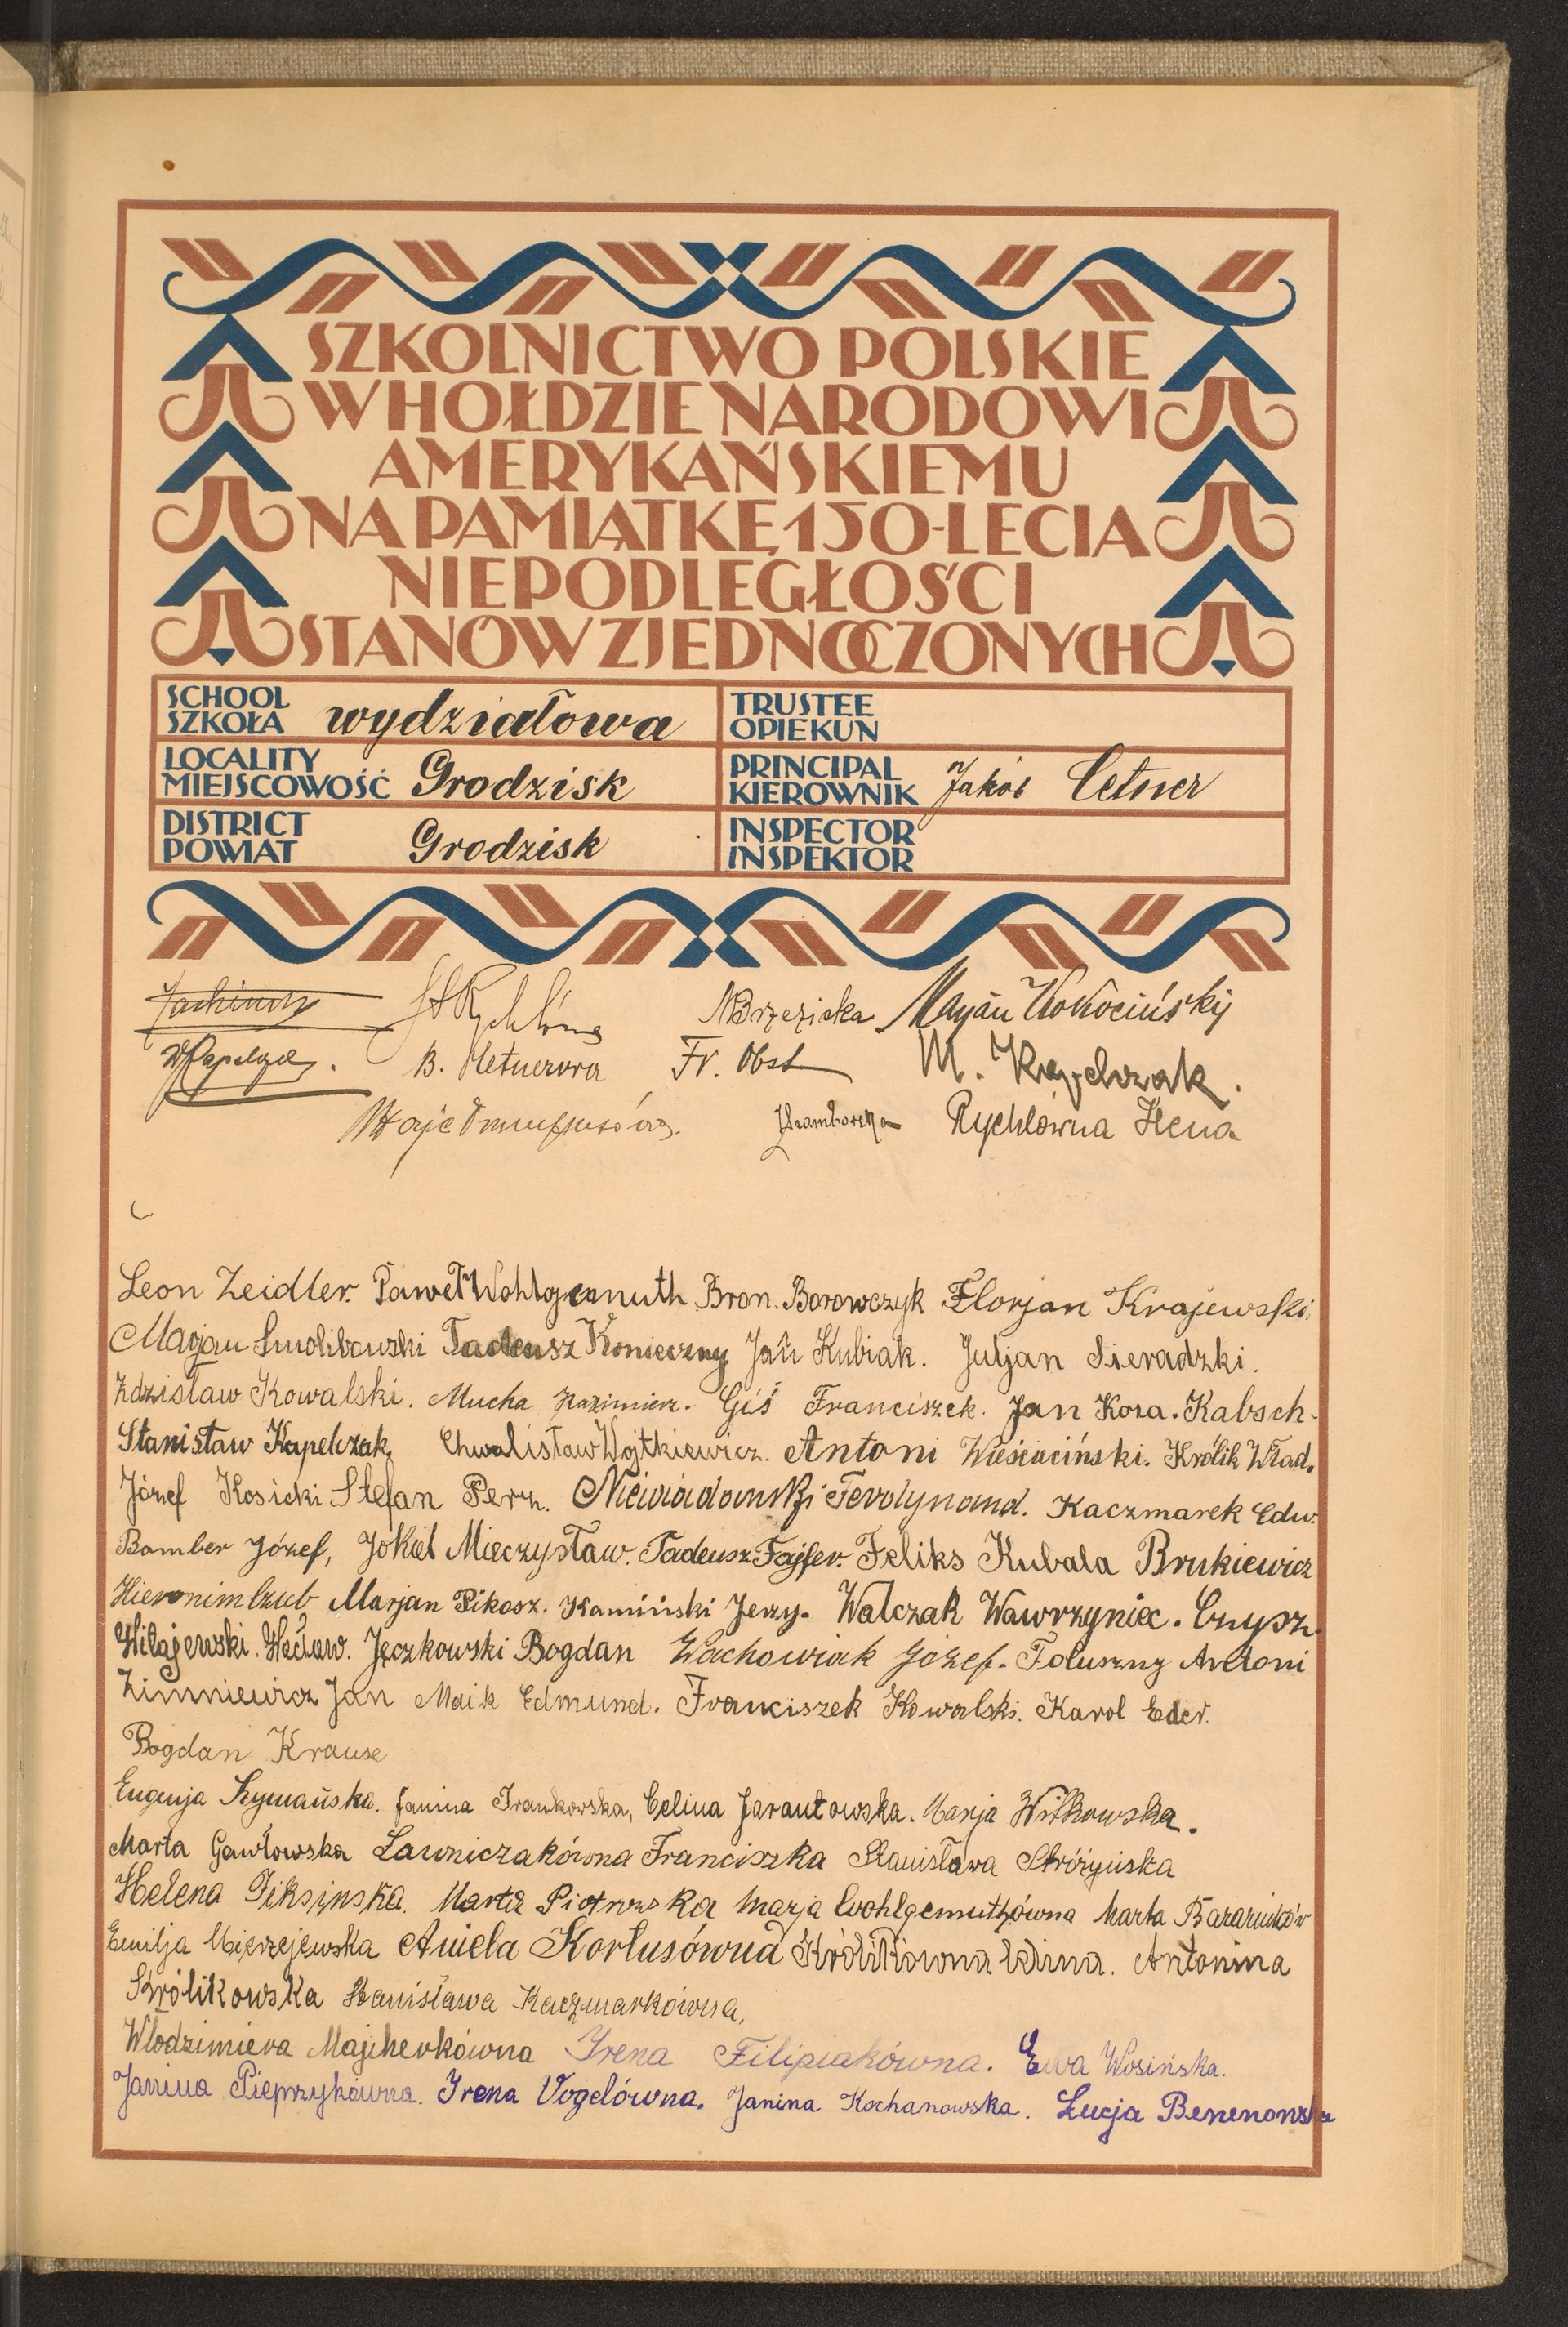 SZKOLNICTWO POLSKIE
W HOŁDZIE NARODOWI
AMERYKAŃSKIEMU
NA PAMIĄTKĘ 150-LECIA
NIEPODLEGŁOŚCI
STANÓW ZJEDNOCZONYCH
SCHOOL
SZKOŁA wydziałowa
TRUSTEE
OPIEKUN
LOCALITY
MIEJSCOWOŚĆ Grodzisk
PRINCIPAL
KIEROWNIK Jakób Cetner
DISTRICT
POWIAT Grodzisk
INSPECTOR
INSPEKTOR
Marjan
B. Fr. Obst M. Kapelczak.
Rychlówna Ilena
Leon Zeidler. Paweł Wohlgemuth Bron. Borowczyk Florjan Krajewski.
Marjan Tadeusz Konieczny Jan Kubiak. Juljan Sieradzki.
Zdzisław Kowalski. Mucha Kazimierz. Giś Franciszek. Jan Koza. Kabsch-
Stanisław Kapelczak, Chwalisław Wojtkiewicz. Antoni Królik Wład.
Józef Kosicki Stefan Perz. Niewiadomski Ferdynand. Kaczmarek Edw.
Bomber Józef, Jokiel Mieczysław. Tadeusz Fajfer. Feliks Kubala Brukiewicz
Hieronim Czub Marjan Pikosz. Kamiński Jerzy. Walczak Wawrzyniec. Czypsz.
Jęczkowski Bogdan Wachowiak Józef. Foluszny Antoni
Zimniewicz Jan Maik Edmund. Franciszek Kowalski. Karol Eder.
Bogdan Krause
Eugenja Szymańska. Janina Frankowska, Celina Jarantowska. Marja Witkowska.
Marta Gawłowska Ławniczakówna Franciszka Stanisława Stróżyńska
Helena Fiksinska. Marta Piotrowska Marja Wohlgemuthówna Marta
Emilja Mierzejewska Aniela Kortusówna Królikówna Antonina
Królikowska Stanisława Kaczmarkówna,
Włodzimiera Majcherkówna Irena Filipiakówna. Ewa Wosińska.
Janina Pieprzykówna. Irena Vogelówna. Janina Kochanowska. Łucja